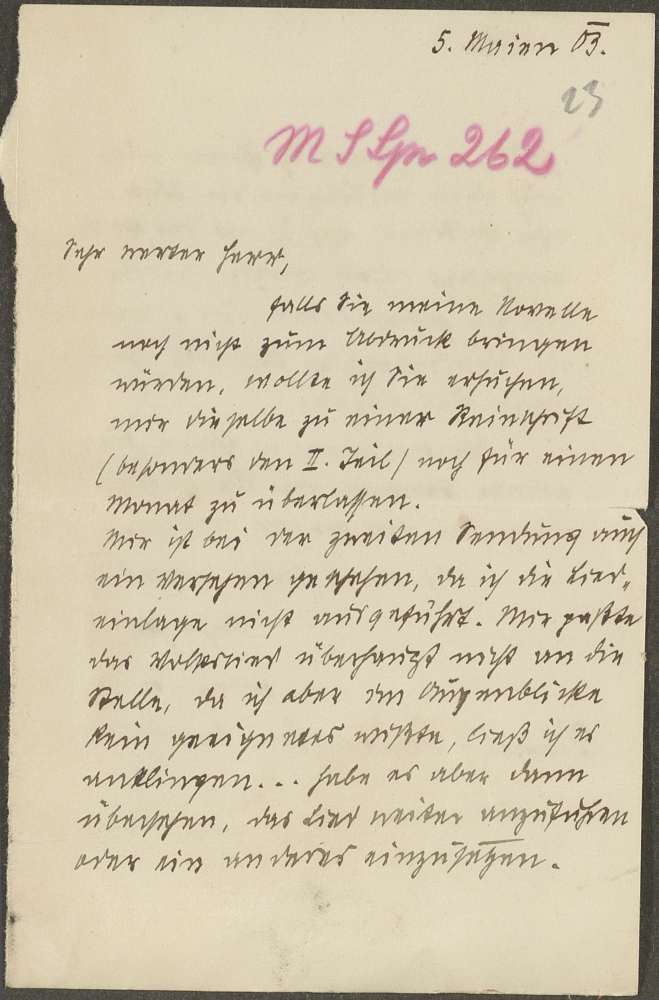 5. Maien 03.
23
M S Spr 262
Sehr werter Herr,
falls Sie meine Novelle
noch nicht zum Abdruck bringen
würden, wollte ich Sie ersuchen,
mir dieselbe zu einer Reinschrift
(besonders den II. Teil) noch für einen
Monat zu überlassen.
Mir ist bei der zweiten Sendung auch
ein Versehen geschehen, da ich die Lied-
einlage nicht ausgeführt. Mir paßte
das Volkslied überhaupt nicht an die
Stelle, da ich aber im Augenblicke
kein geeignetes wußte, ließ ich es
anklingen... habe es aber dann
übersehen, das Lied weiter anzuführen
oder ein anderes einzusetzen.